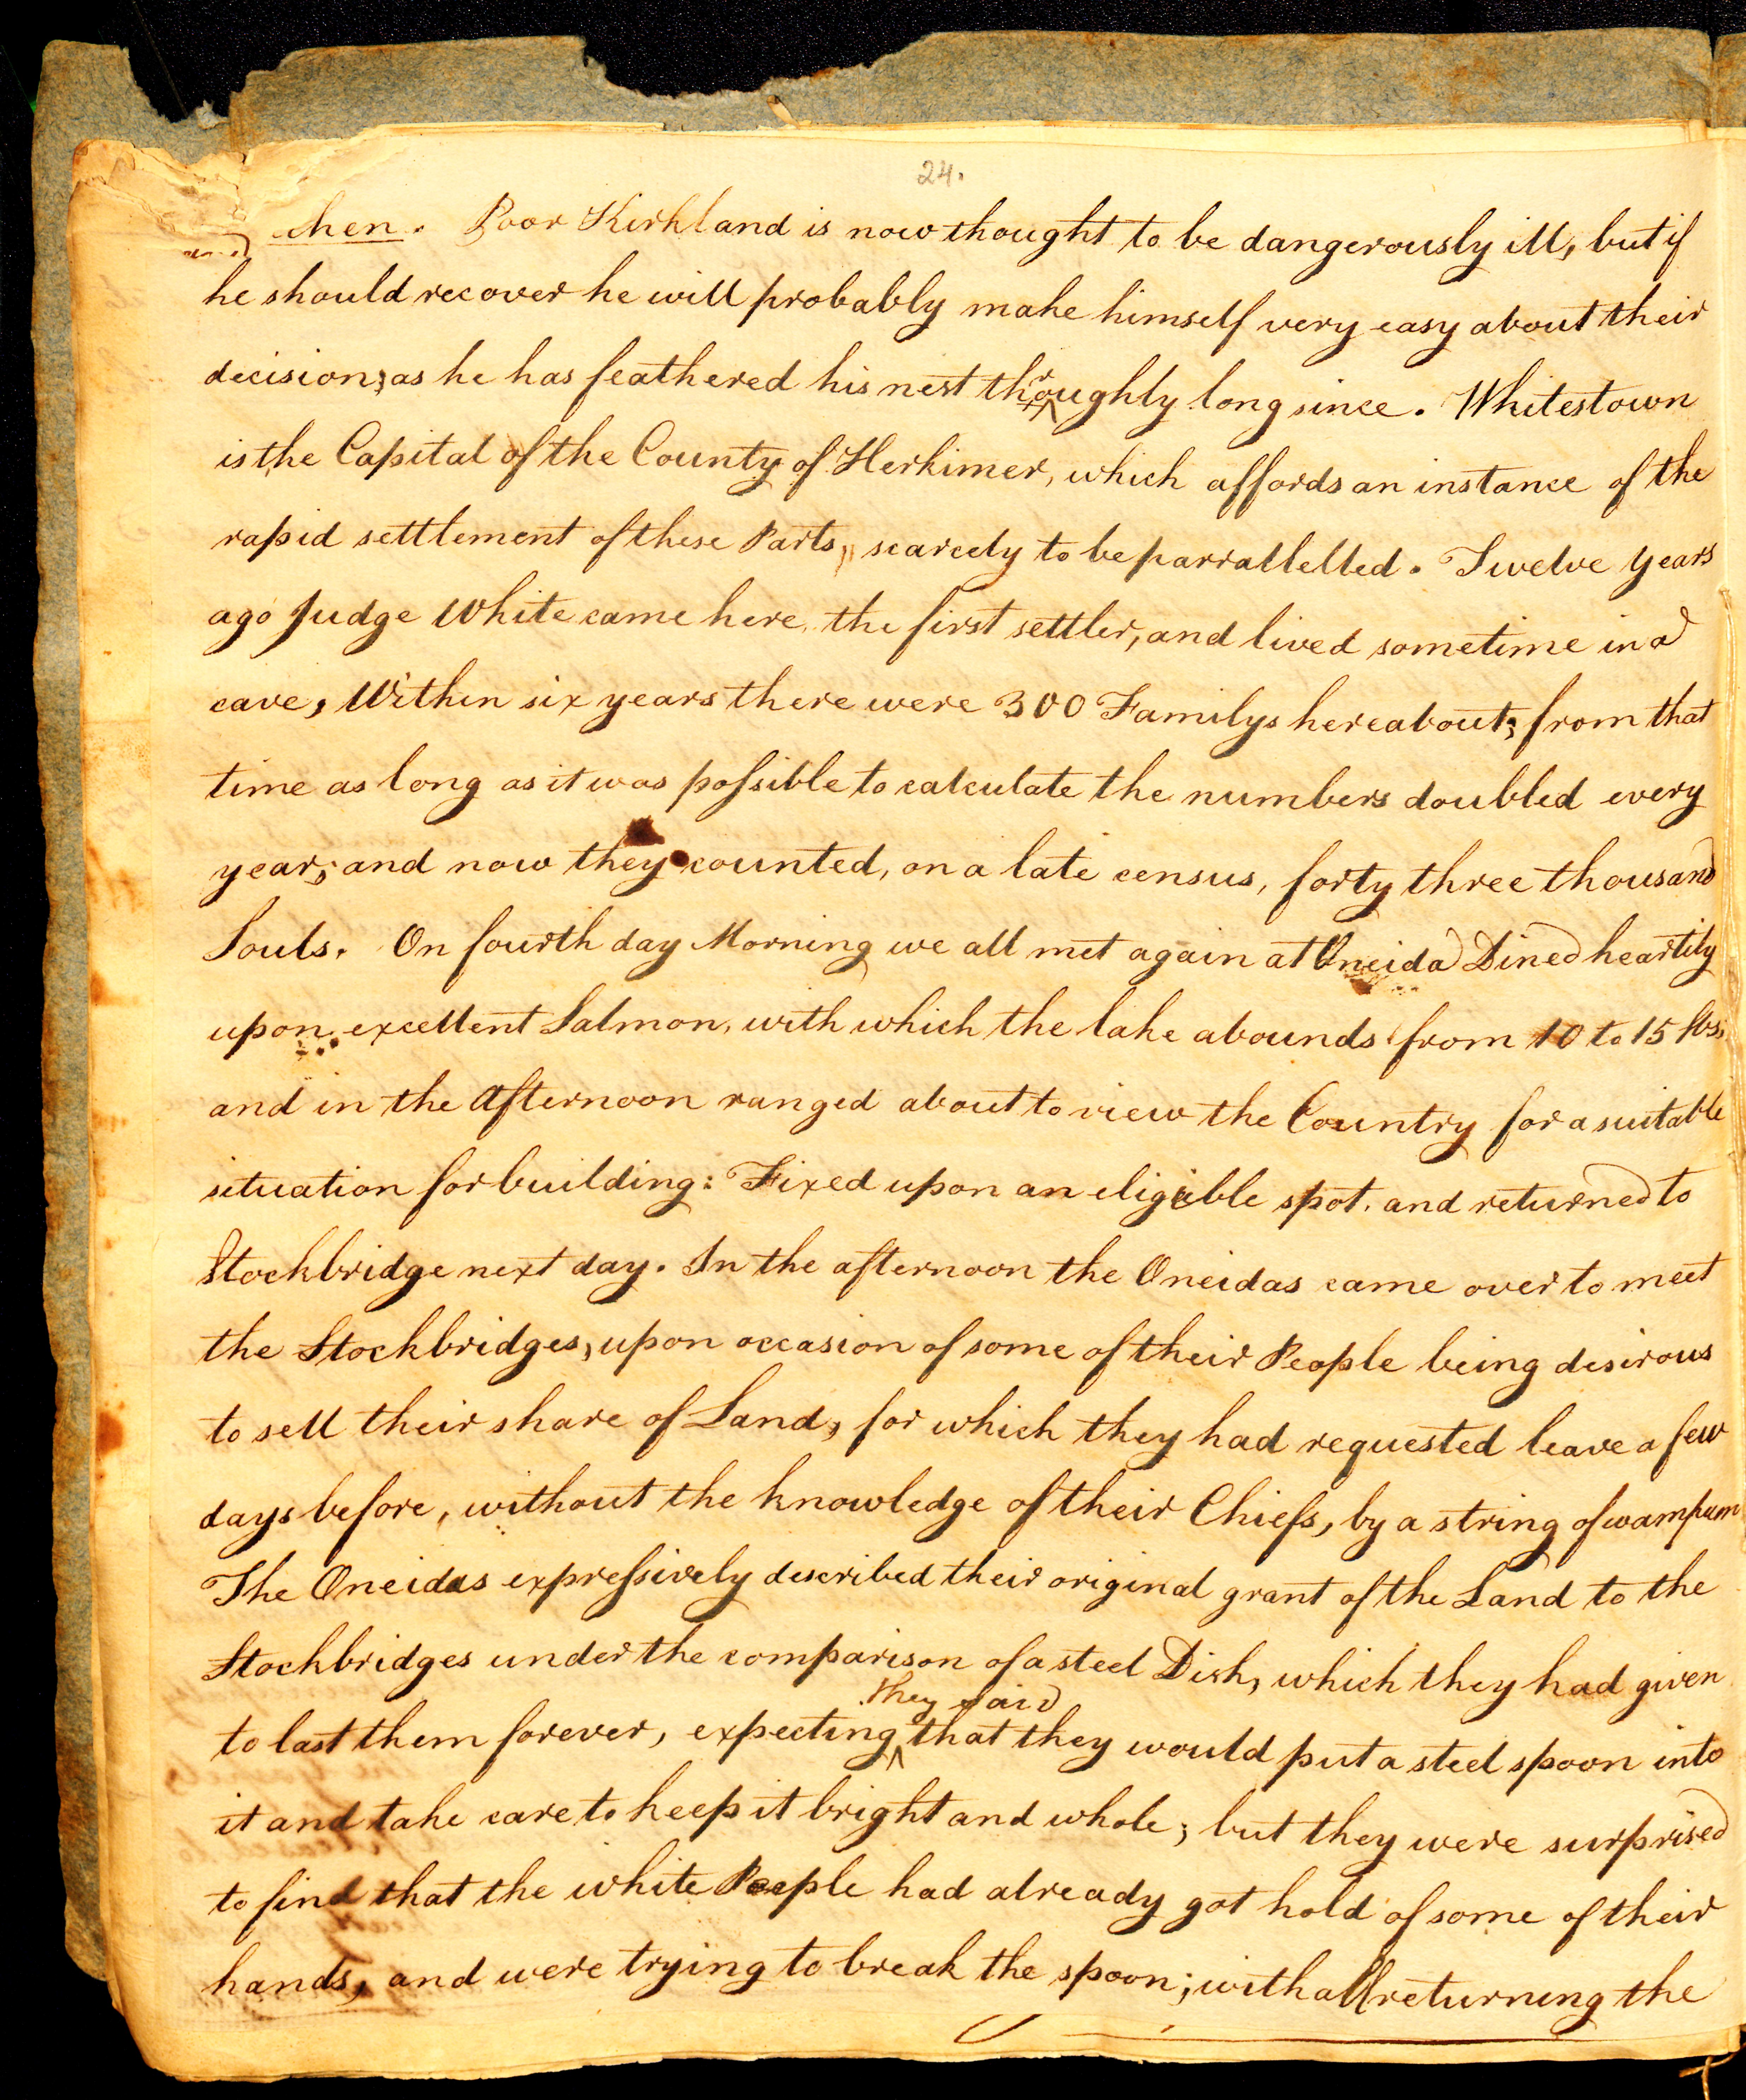 24.
then. Poor Kirkland is now thought to be dangerously ill, but if
he should recover he will probably make himself very easy about their
decision; as he has feathered his nest thoroughly long since. Whitestown
is the Capital of the County of Herkimer, which affords an instance of the
rapid settlement of these Parts, scarcely to be parrallelled. Twelve years
ago Judge White came here the first settler, and lived sometime in a
cave, Within six years there were 300 Familys hereabout; from that
time as long as it was possible to calculate the numbers doubled every
year; and now they counted, on a late census, forty three thousand
Souls. On fourth day Morning we all met again at Oneida Dined heartily
upon excellent Salmon, with which the lake abounds from 10 to 15 lbs;
and in the Afternoon ranged about to view the Country for a suitable
situation for building: Fixed upon an eligible spot. and returned to
Stockbridge next day. In the afternoon the Oneidas came over to meet
the Stockbridges, upon occasion of some of their People being desirous
to sell their share of Land, for which they had requested leave a few
days before, without the knowledge of their Chiefs, by a string of wampum
The Oneidas expressively described their original grant of the Land to the
Stockbridges under the comparison of a steel Dish, which they had given
they said
to last them forever, expecting that they would put a steel spoon into
it and take care to keep it bright and whole; but they were surprised
to find that the white People had already got hold of some of their
hands, and were trying to break the spoon; withall returning the